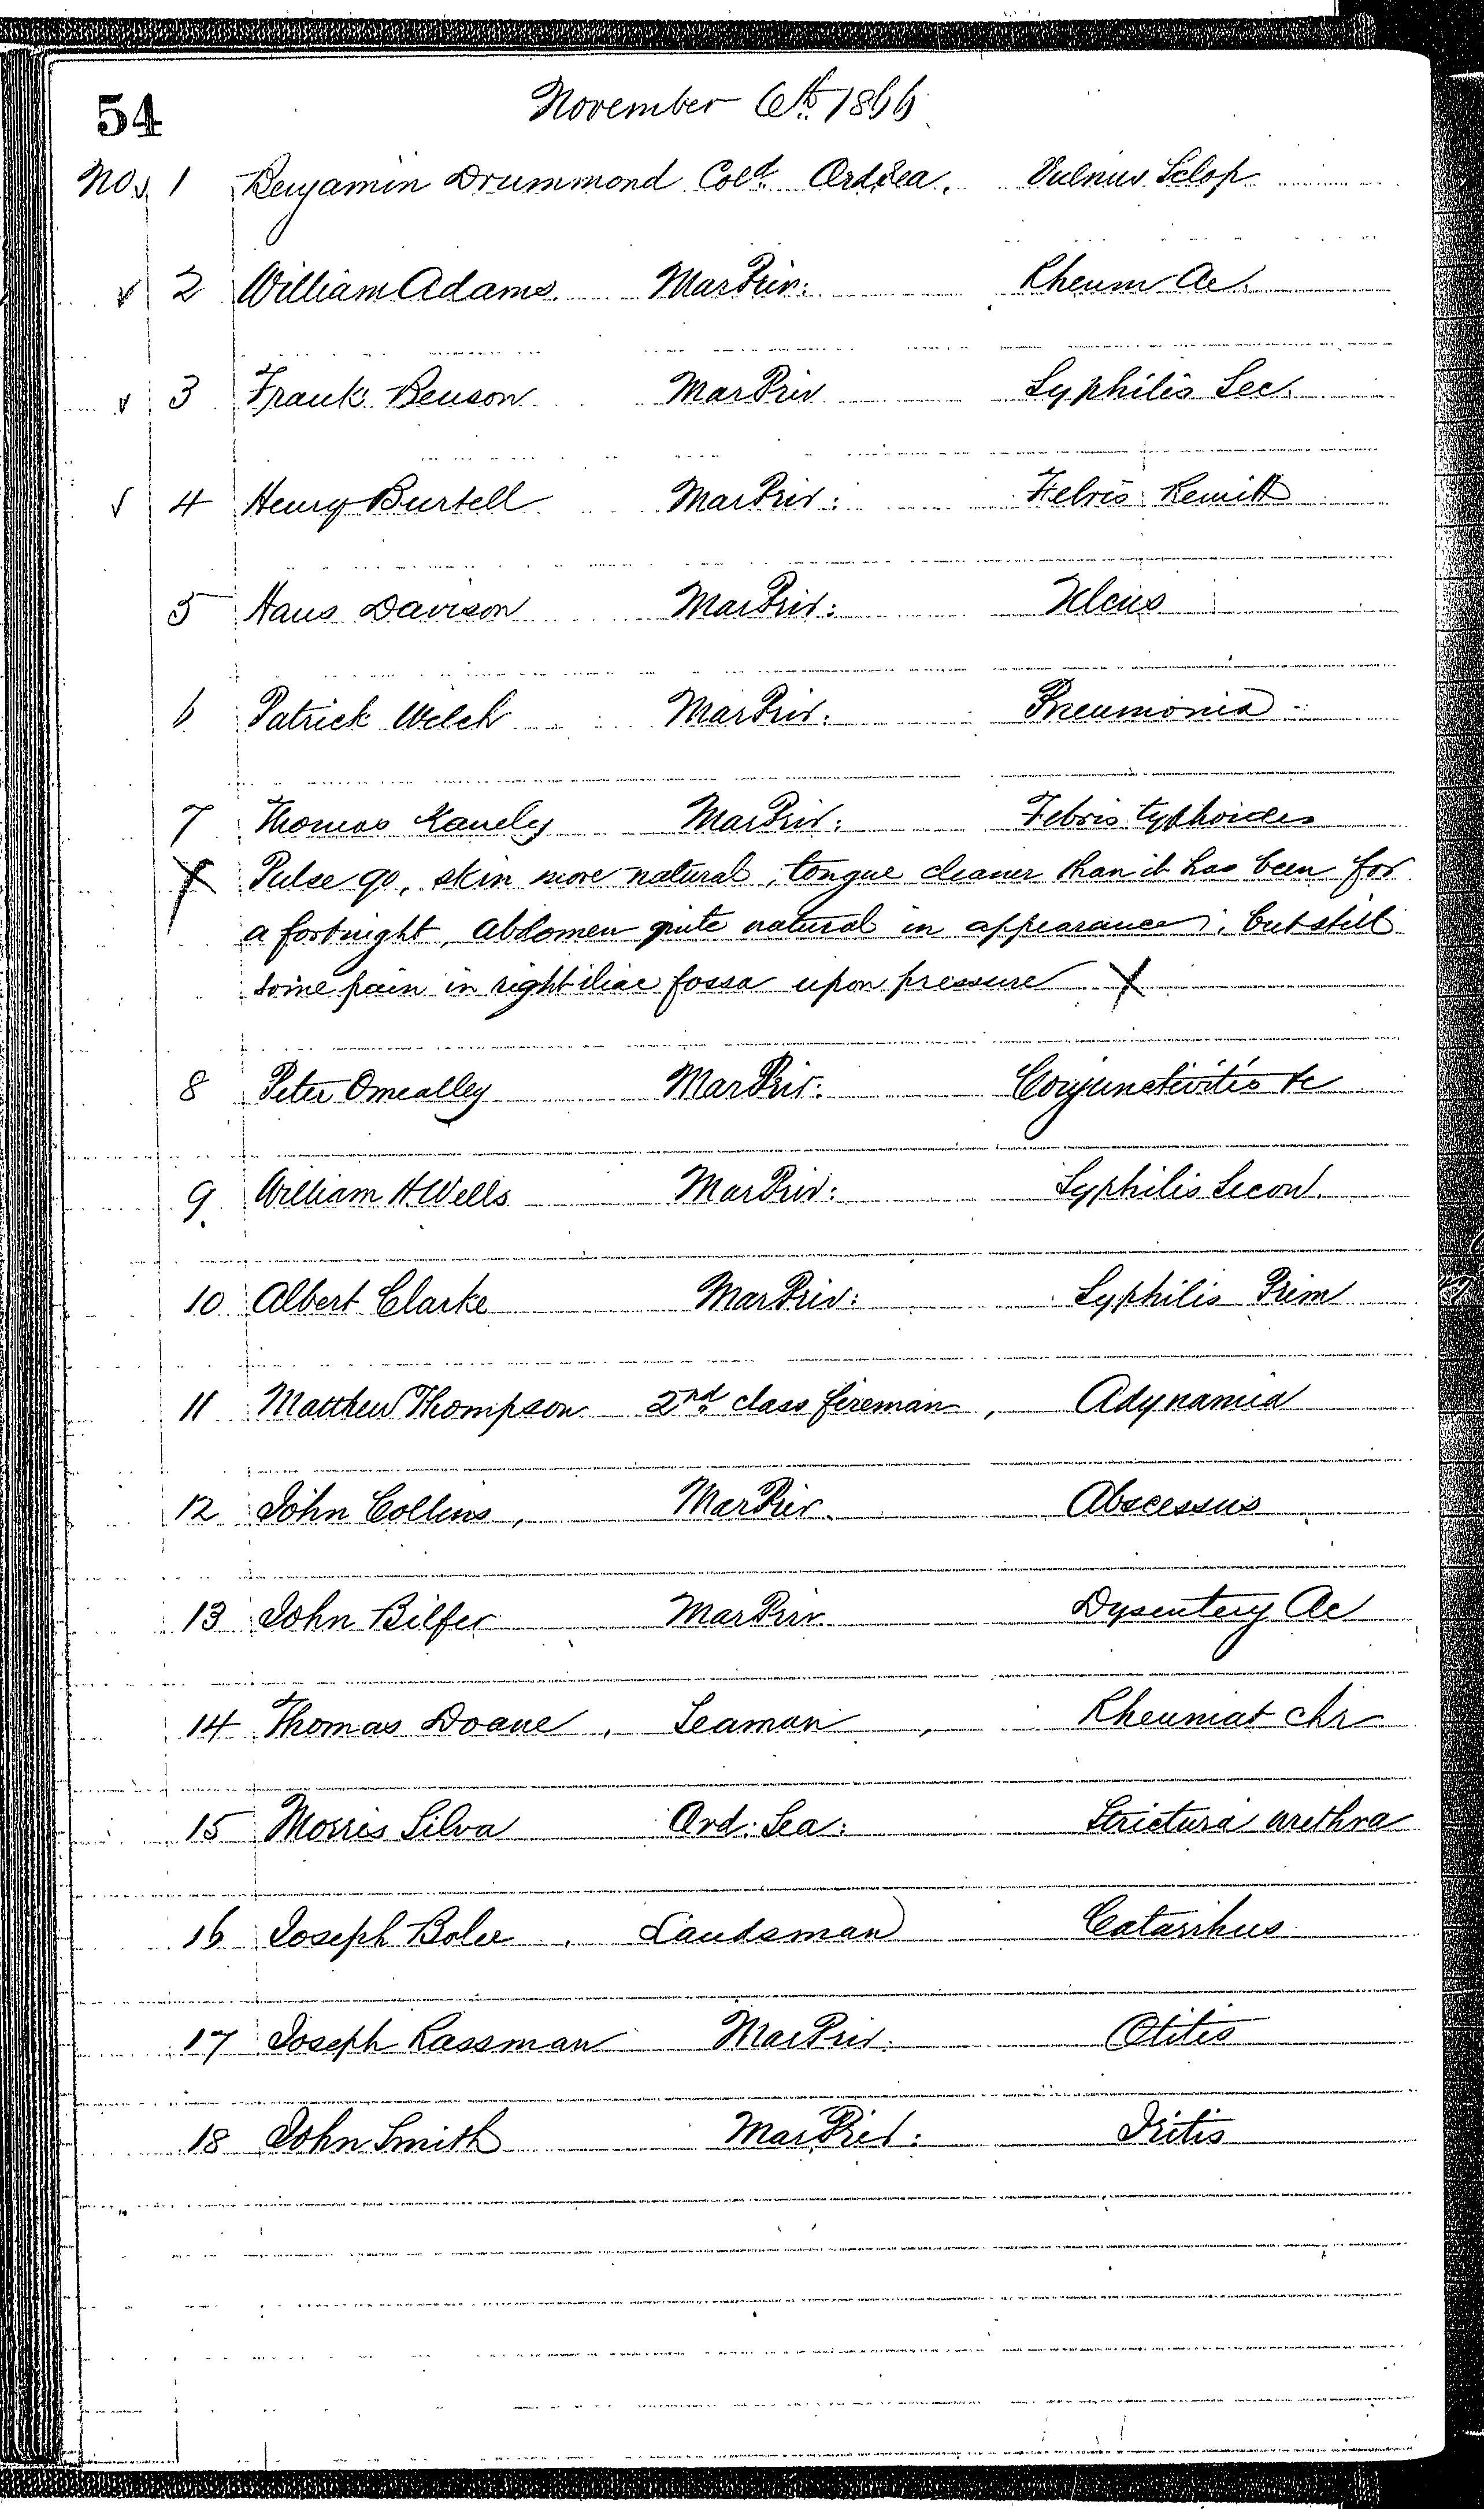 54
November 6th. 1866
No. 1 Benjamin Drummond Cold. Ord Sea. Vulnus Sclop
2 William Adams. Mar Priv: Rheum Ac.
3 Frank Benson Mar Priv Syphilis Sec.
4 Henry Burtell Mar Priv: Febris Remitt
5 Hans Davison Mar Priv: Ulcus
6 Patrick Welch Mar Priv. Pneumonia
7 Thomas Kanely Mar Priv: Febris typhoides
X Pulse 90, skin more natural, tongue cleaner than it has been for
a fortnight, abdomen quite natural in appearance; but still
some pain in right iliac fossa upon pressure X
8 Peter Omealley Mar Priv: Conjunctivitis &c
9. William H. Wells Mar Priv: Syphilis Secon.
10 Albert Clarke Mar Priv: Syphilis Prim
11 Matthew Thompson 2nd. class fireman, Adynamia
12 John Collins, Mar Priv. Abscessus
13 John Bilfer Mar Priv. Dysentery Ac
14 Thomas Doane, Seaman, Rheumat chr
15 Morris Silva Ord: Sea: Strictura urethra
16 Joseph Boler. Landsman Catarrhus
17 Joseph Rassman Mar Priv. Otitis
18 John Smith Mar Priv: Iritis